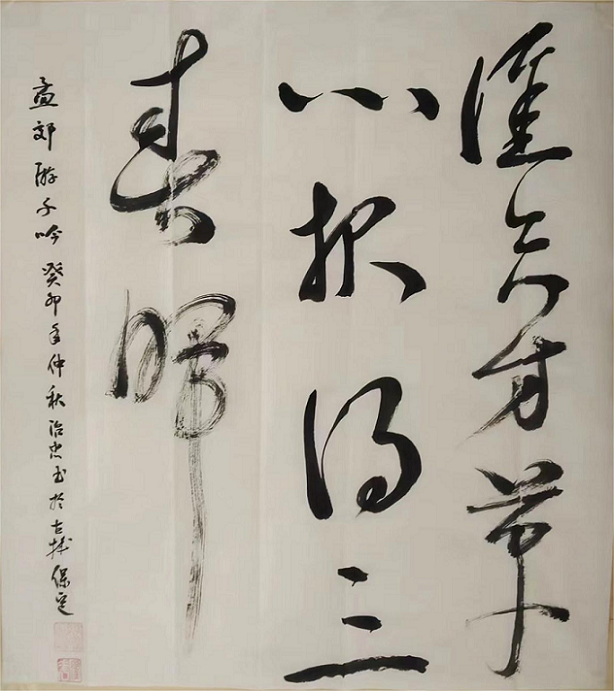 谁言寸草
心报得三
春晖
孟郊游子吟 癸卯年仲秋治忠书于古城保定